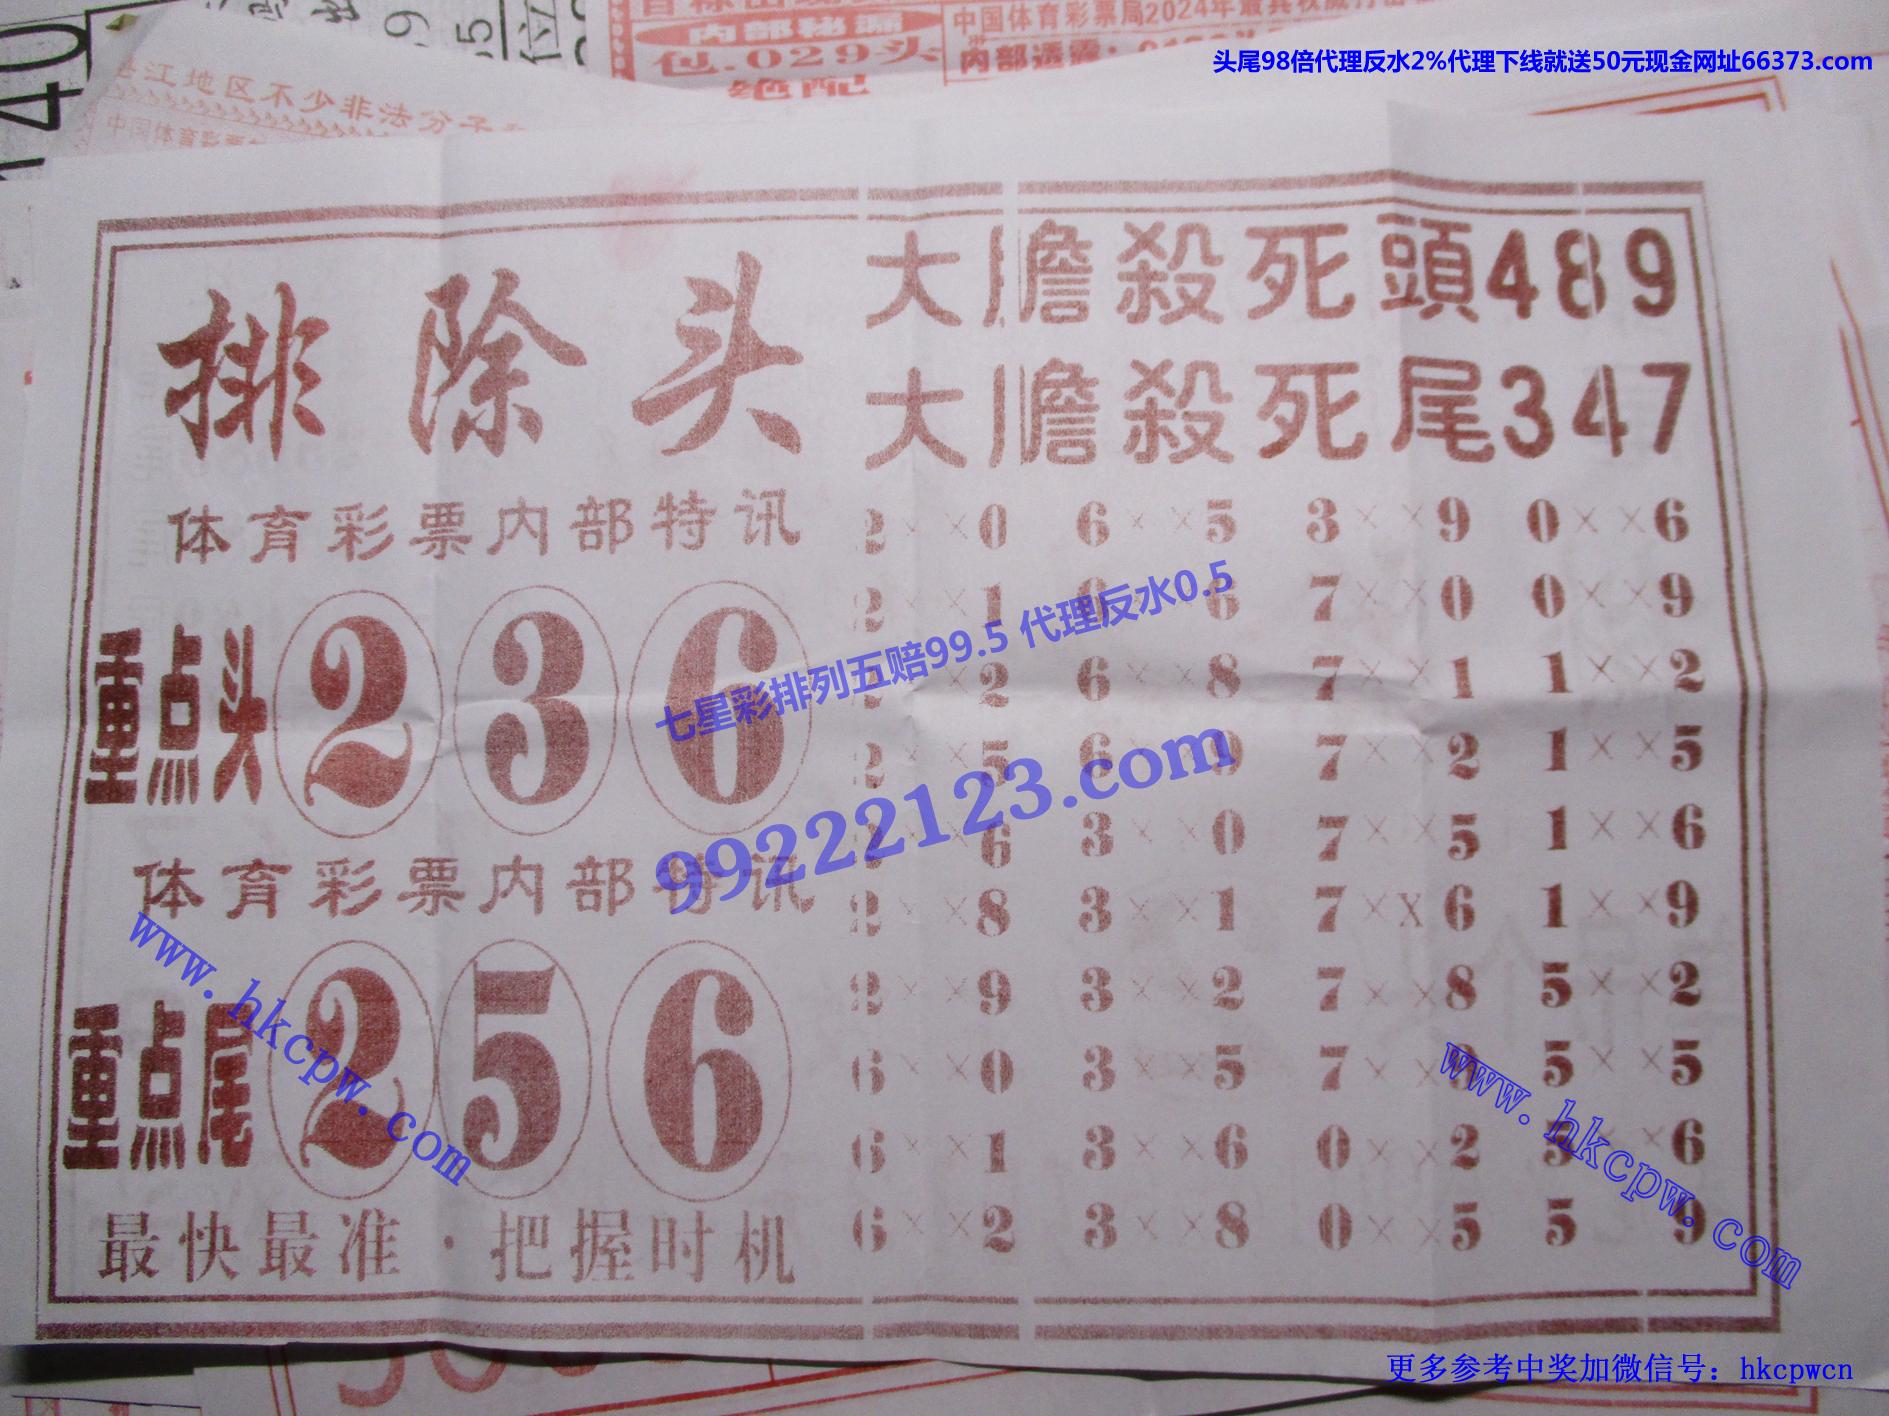 内部秘源
包.029头
绝配
中国体育彩票局2024年最具权威
内部透露:
头尾98倍代理反水2%代理下线就送50元现金网址66373.com
江地区不少非法分子
中国体育彩票
排除头
大膽殺死頭489
大膽殺死尾347
体育彩票内部特讯
重点头 2 3 6
体育彩票内部特讯
重点尾 2 5 6
最快最准·把握时机
2××0 6××5 3××9 0××6
2××1 6××6 7××0 0××9
2××2 6××8 7××1 1××2
2××5 6××9 7××2 1××5
2××6 3××0 7××5 1××6
2××8 3××1 7×X6 1××9
2××9 3××2 7××8 5××2
6××0 3××5 7××9 5××5
6××1 3××6 0××2 5××6
6××2 3××8 0××5 5 9
七星彩排列五赔99.5 代理反水0.5
99222123.com
www.hkcpw.com
www.hkcpw.com
更多参考中奖加微信号：hkcpwcn